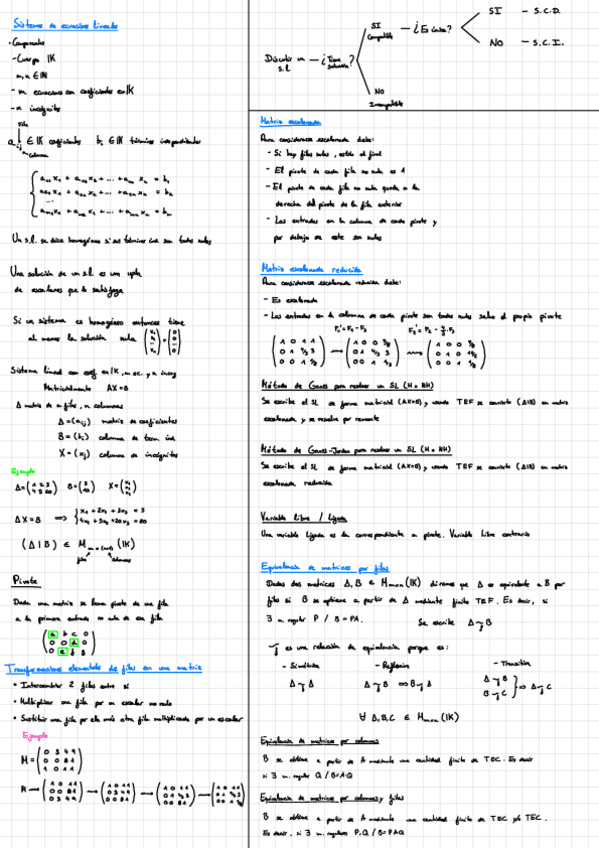 Sistema de ecuaciones lineales
· Componentes
- Cuerpo IK
m, n ∈ IN
- m ecuaciones con coeficientes en IK
- n incógnitas
fila
a ∈ IK coeficientes b ∈ IK términos independientes
columna
a₁₁ x₁ + a₁₂ x₂ + ... + a₁ₙ xₙ = b₁
a₂₁ x₁ + a₂₂ x₂ + ... + a₂ₙ xₙ = b₂
...
aₘ₁ x₁ + aₘ₂ x₂ + ... + aₘₙ xₙ = bₘ
Un s.l. se dice homogéneo si sus términos ind son todos nulos
Una solución de un s.l. es una upla
de escalares que lo satisfaga
Si un sistema es homogéneo entonces tiene
al menos la solución nula
Sistema lineal con coef. en IK, m ec. y n incog
Matricialmente AX=B
A matriz de m filas, n columnas
A=(aᵢⱼ) matriz de coeficientes
B=(bᵢ) columna de term. ind
X=(xⱼ) columna de incógnitas
Ejemplo
AX=B ⟹
(A|B) ∈ M (IK)
filas columnas
Pivote
Dada una matriz se llama pivote de una fila
a la primera entrada no nula de esa fila
a b c 0
0 0 d 0
Transformaciones elementales de filas en una matriz
• Intercambiar 2 filas entre sí
• Multiplicar una fila por un escalar no nulo
• Sustituir una fila por ella más otra fila multiplicada por un escalar
Ejemplo
M =
M →
Discutir un s.l. — ¿Tiene solución?
SI Compatible — ¿Es única?
SI — S.C.D.
NO — S.C.I.
NO
Incompatible
Matriz escalonada
Para considerarse escalonada debe:
- Si hay filas nulas, estén al final
- El pivote de cada fila no nula es 1
- El pivote de cada fila no nula queda a la
derecha del pivote de la fila anterior
- Las entradas en la columna de cada pivote y
por debajo de este son nulas
Matriz escalonada reducida
Para considerarse escalonada reducida debe:
- Es escalonada
- Las entradas en la columna de cada pivote son todas nulas salvo el propio pivote
Método de Gauss para resolver un SL (H o NH)
Se escribe el SL de forma matricial (AX=B) y, usando TEF se convierte (A|B) en matriz
escalonada, y se resuelve por remonte
Método de Gauss-Jordan para resolver un SL (H o NH)
Se escribe el SL de forma matricial (AX=B) y, usando TEF se convierte (A|B) en matriz
escalonada reducida
Variable libre / ligada
Una variable ligada es la correspondiente a pivote. Variable libre contrario
Equivalencia de matrices por filas
Dadas dos matrices A, B ∈ Mₘₓₙ(IK) diremos que A es equivalente a B por
filas si B se obtiene a partir de A mediante finito TEF. Es decir, si
∃ m. regular P / B = PA. Se escribe A ~ B
~ es una relación de equivalencia porque es:
- Simétrica - Reflexiva - Transitiva
A ~ A A ~ B ⟺ B ~ A A ~ B
B ~ C ⟹ A ~ C
∀ A,B,C ∈ Mₘₓₙ(IK)
Equivalencia de matrices por columnas
B se obtiene a partir de A mediante una cantidad finita de TEC. Es decir
si ∃ m. regular Q / B=A·Q
Equivalencia de matrices por columnas y filas
B se obtiene a partir de A mediante una cantidad finita de TEC y/o TEC.
Es decir, si ∃ m. regulares P,Q / B=PAQ